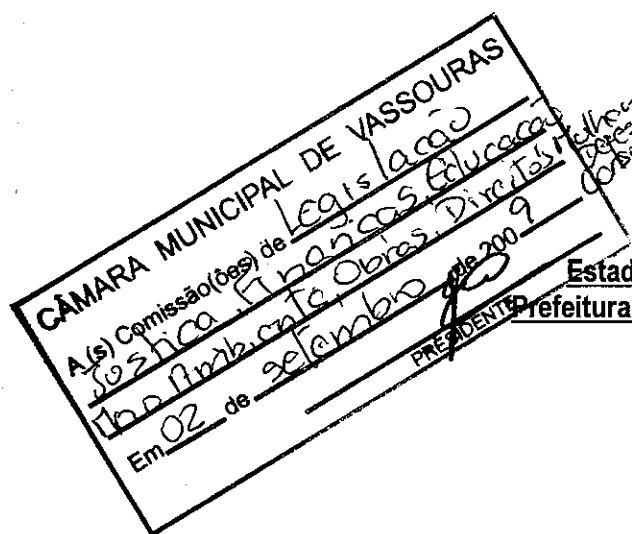 CÂMARA MUNICIPAL DE VASSOURAS
A (s) Comissão(ões) de Legislação
Justiça, Finanças, Educação
Meio Ambiente, Obras, Direitos
Em 02 de setembro de 2009
PRESIDENTE
Estad
Prefeitura